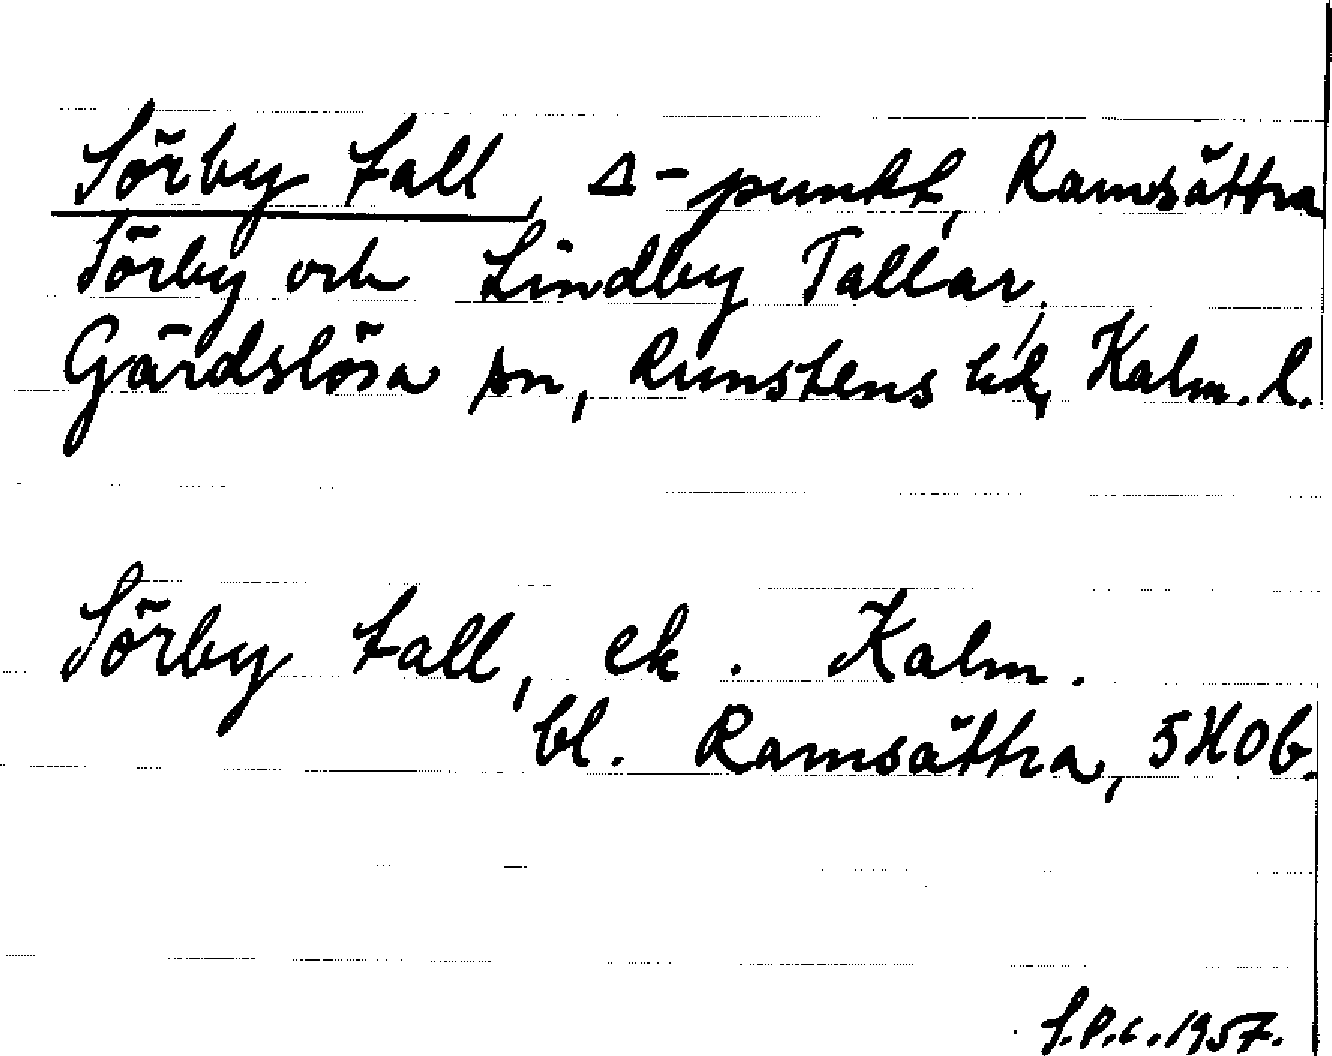 Sörby tall, Δ-punkt, Ramsättra
Sörby och Lindby Tallar,
Gärdslösa sn, Runstens hd, Kalm. l.
Sörby tall, ek. Kalm.
bl. Ramsättra, 5H0b.
S.P.C. 1957.